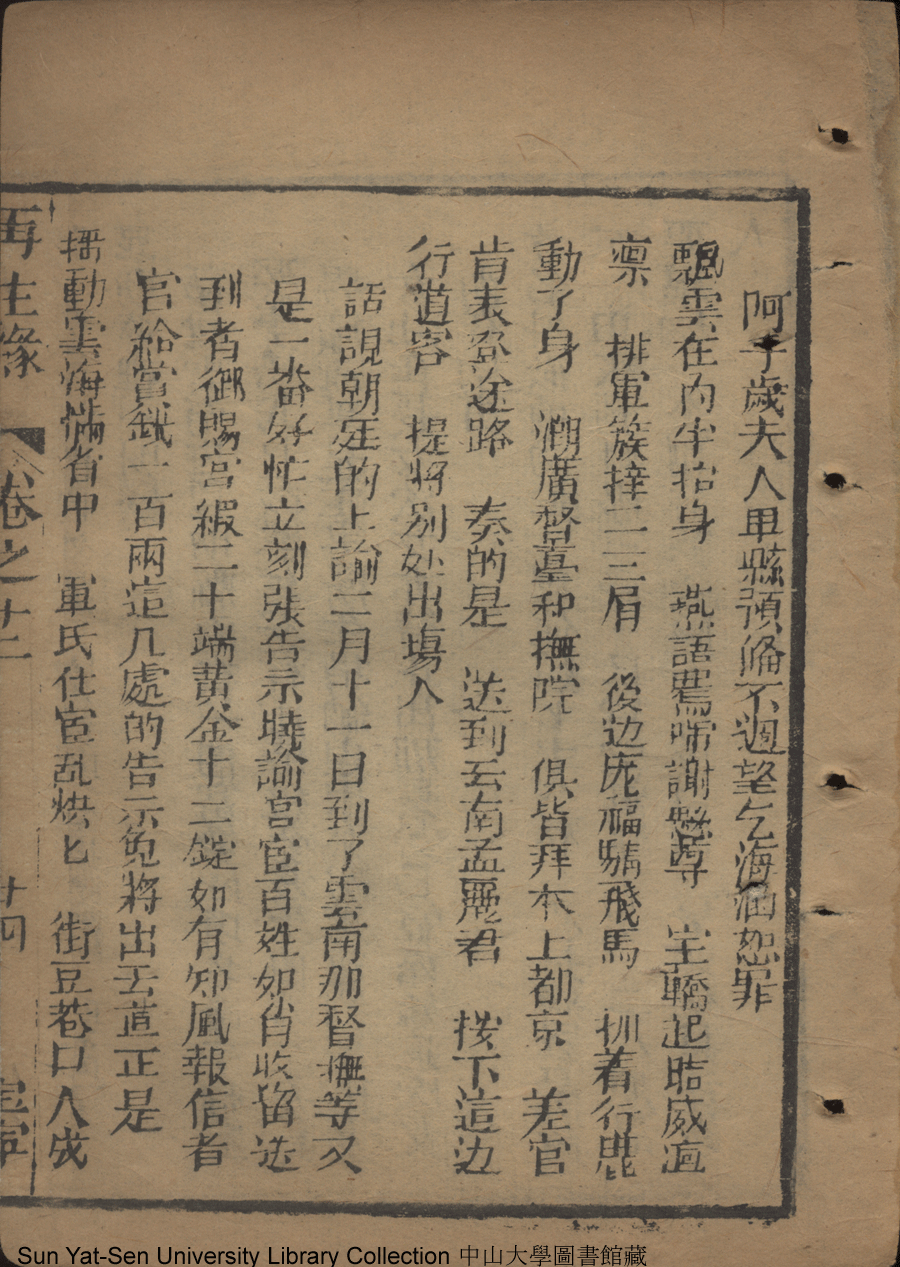 阿千歲夫人甲縣預俻不週望乞海涵恕罪
飄雲在內半抬身 燕語鶯啼謝縣尊 宝轎起時威凛
凛 排軍簇擁二三肩 後边庞福騎飛馬 押着行鹿
動了身 湖廣督臺和撫院 俱皆拜本上都京 差官
肯表登途路 奏的是 送到云南孟麗君 按下這边
行道客 提將别处出塲人
話說朝廷的上諭二月十一日到了雲南那督撫等又
是一番好忙立刻張告示曉諭宫宦百姓如肖收留送
到者御賜宫緞二十端黄金十二錠如有知風報信者
官給賞銀一百兩這几處的告示免將出去道正是
摇動雲海滿省中 軍氏仕宦乱烘匕 街豆巷口人成
再生緣 卷之十二 廿四
Sun Yat-Sen University Library Collection 中山大學圖書館藏